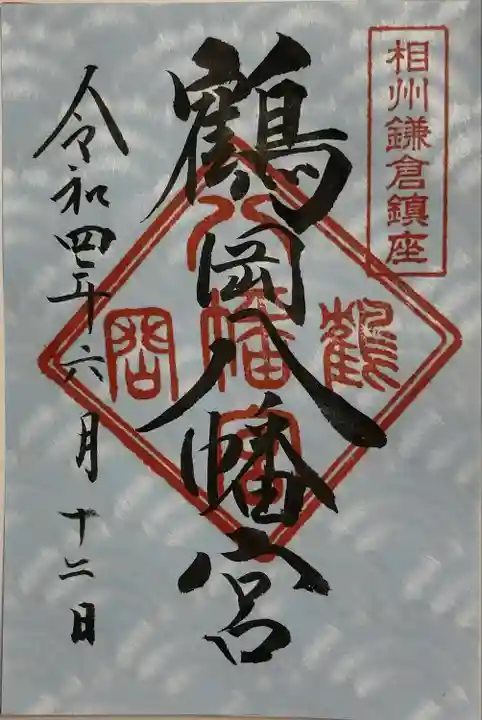 相州鎌倉鎮座
鶴岡八幡宮
鶴
八幡宮
岡
令和四年六月十二日